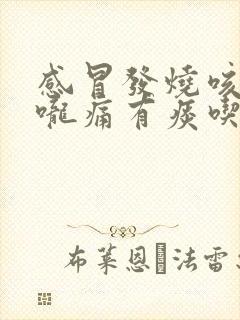 感冒發燒咳
嚨痛有痰喫
布萊恩·法雷